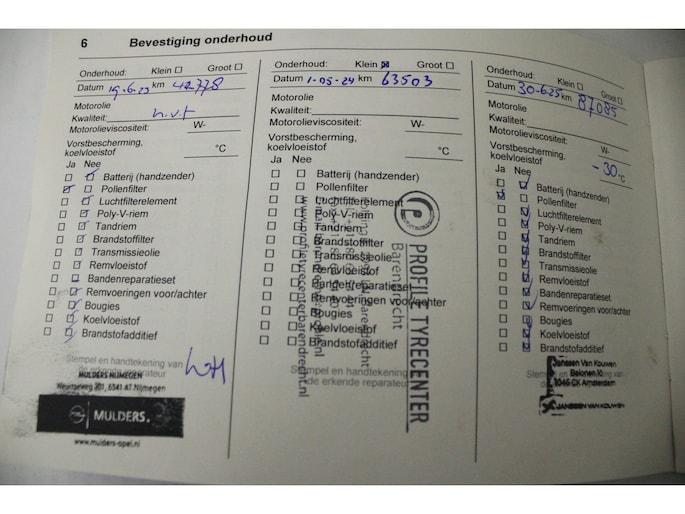 6 Bevestiging onderhoud
Onderhoud: Klein ☐ Groot ☐
Datum 19-6-23 km 42778
Motorolie
Kwaliteit: n.v.t
Motorolieviscositeit: W-
Vorstbescherming,
koelvloeistof °C
Ja Nee
Batterij (handzender)
Pollenfilter
Luchtfilterelement
Poly-V-riem
Tandriem
Brandstoffilter
Transmissieolie
Remvloeistof
Bandenreparatieset
Remvoeringen voor/achter
Bougies
Koelvloeistof
Brandstofadditief
Stempel en handtekening van
de erkende reparateur
MULDERS NIJMEGEN
Weurtseweg 201, 6541 AT Nijmegen
MULDERS.
www.mulders-opel.nl
Onderhoud: Klein ☒ Groot ☐
Datum 1-05-24 km 63503
Motorolie
Kwaliteit:
Motorolieviscositeit: W-
Vorstbescherming,
koelvloeistof °C
Ja Nee
Batterij (handzender)
Pollenfilter
Luchtfilterelement
Poly-V-riem
Tandriem
Brandstoffilter
Transmissieolie
Remvloeistof
Bandenreparatieset
Remvoeringen voor/achter
Bougies
Koelvloeistof
Brandstofadditief
Stempel en handtekening
de erkende reparateur
PROFILE TYRECENTER
Barendrecht
www.profiletyrecenterbarendrecht.nl
Onderhoud: Klein ☐ Groot ☐
Datum 30-6-25 km 87085
Motorolie
Kwaliteit:
Motorolieviscositeit: W-
Vorstbescherming,
koelvloeistof -30 °C
Ja Nee
Batterij (handzender)
Pollenfilter
Luchtfilterelement
Poly-V-riem
Tandriem
Brandstoffilter
Transmissieolie
Remvloeistof
Bandenreparatieset
Remvoeringen voor/achter
Bougies
Koelvloeistof
Brandstofadditief
Janssen Van Kouwen
1046 CK Amsterdam
JANSSEN VAN KOUWEN